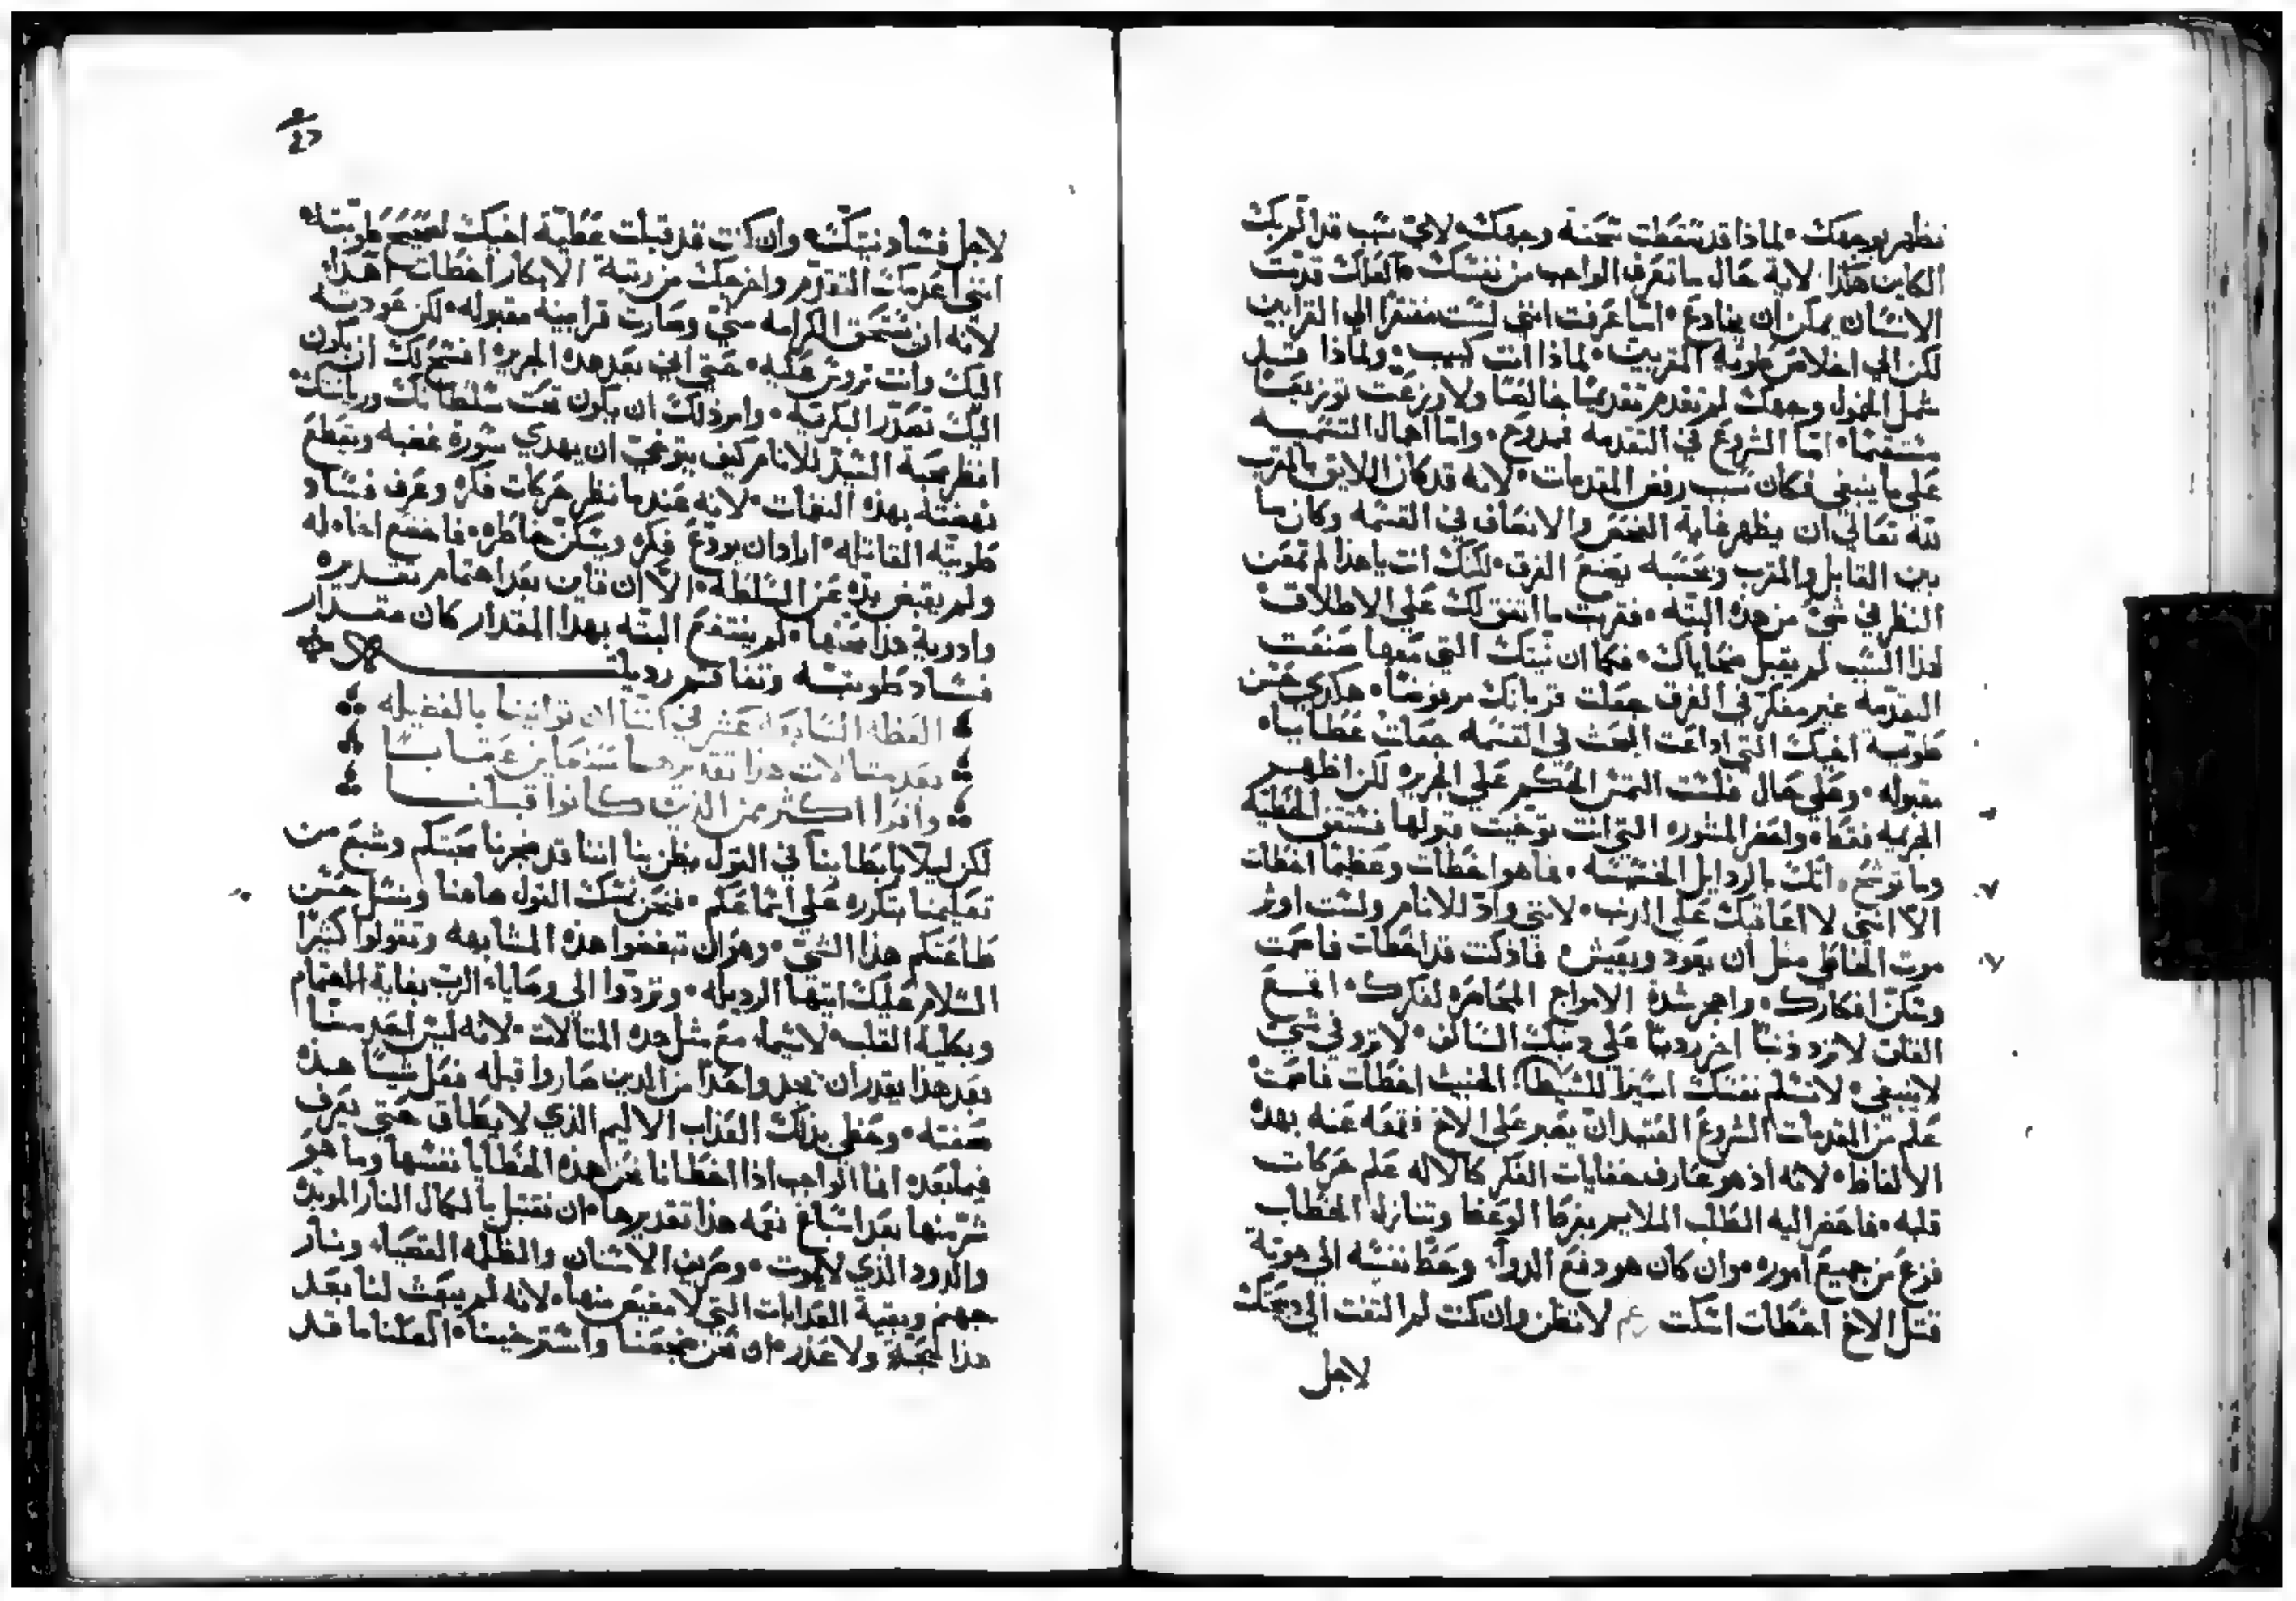 تظهر بوجهك • لماذا قد سقطت سحنة وجهك • لاي سبب قد المريك
الكاين هكذا • لاية حال ما تعرف الواجب من نفسك • العلك قدمت
الانسان يمكن ان يخادع • اما عرفت انني لست مفتقرًا الي القرابين
لكن الي اخلاص طوية المقربين • لماذا انت كييب • ولماذا قد
شمل الخمول وجهك لم تقدم تقديمًا خالصًا ولا وزعت توزيعًا
مستقيمًا • امّا الشروع في التقدمه فمدوح • وامّا اهمال القسمه
علي ما ينبغي فكان سبب رفض المقدمات • لانه قد كان اللايق بالمقرب
لله تعالي ان يظهر غاية الفحص والانصاف في القسمه وكان ما
بين القابل والمقرب وبحسبه يضع الفرق • لكنك انت يا هذا لم تمعن
النظر في شي من هذه البته • فقربت ما اتفق لك علي الاطلاق •
لهذا السبب لم يقبل ضحاياك • فكما ان نيتك التي معها صنعت
التقدمه غير مفكر في الفرق جعلت قربانك مرفوضًا • هكذي حسن
طوية اخيك التي اذاعت البحث في القسمه جعلت عطاياه •
مقبوله • وعلي حال فلست التمس الحكم علي الجريره لكن اظهر
الجريمه فقط • وامنحر المشوره التي انت توخيت قبولها تستعف الخطيه
وما توسخ • انك بالردايل الخسيسه • فما هو اخطات وعظيمًا اخطات
الّا انني لا اعاقبك علي الذنب • لانني وادّ للانام ولست اوثر
موت الخاطي مثل ان يعود ويعيش • فاذ كنت قد اخطات فاصمت
وسكّن افكارك • واهجر شدة الامواج المحاصره لفكرك • اقمع
القلق لا تزد ذنبًا اخر رديًا علي ذنبك السالف • لا تروي في شي
لا ينبغي • لا تسلم نفسك اسيرًا للشيطان الخبيث اخطات فاصمت
علم من المقدمات الشروع العتيد ان يصير علي الاخ فمنعه عنه بهذه
الالفاظ • لانه اذ هو عارف خفايات الفكر كالاله علم حركات
قلبه • فاحضر اليه الطلب الملايم بفرط الوعظ وتنازل الخطاب
فزع من جميع اموره • وان كان هو دفع الدواء وحط نفسه الي هوة
قتل الاخ اخطات اسكت لا تظن وان كنت لم التفت الي ذبيحتك
لاجل
لاجل فساد نيتك • وان كنت قد قبلت عطية اخيك لصحيح طويته •
انني اعدمك التقدم واخرجك من رتبة الابكار اخطات اهدا
لانه ان استحق الكرامه مني وصارت قرابينه مقبوله • لكن عودته
اليك وانت تروس عليه • حتي اني بعد هذه الجريره افسح لك ان يكون
اليك تصدر البكريه • وامر ذلك ان يكون تحت سلطانك ورياستك •
انظر محبة السيد للانام كيف يتوخي ان يهدي سورة غضبه ويقطع
نهضته بهذه النغمات • لانه عندما نظر حركات فكره وعرف فساد
طويته القاتله • اراد ان يودع فكره ويسكن خاطره • فاخضع اخاه له
ولم يقبض يده عن السلطه • الا ان قاين بعد اهتمام تقديره
وادوية هذا مبلغها • لم ينتفع البته بهذا المقدار كان مقدار
فساد طويته وتفاقم رديلته
العظه السابعة عشر في اننا ان توانينا بالفضيله
بعد مثالات هذا تقديرها سنعاين عقابًا
وافرًا اكثر من الذين كانوا قبلنا
لكن ليلا باطابنا في القول يظن بنا اننا قد ضجرنا محبتكم وشبع من
تعليمنا بتكرره علي اسماعكم • فنحن نمسك القول هاهنا ونسل حسن
طاعتكم هذا الشي • وهو ان تبغضوا هذه المشابهه وتقولوا كثيرًا
السلام عليك ايتها الرديله • وتردّوا الي وصايا الرب بغاية الاهتمام
وبكلية القلب • لاسيما مع مثل هذه المثالات • لانه ليس احد منا
بعد هذا يقدر ان يجد واحدًا من الذين صاروا قبله فعل شيًا هذه
صفته • وحظي بذلك العذاب الاليم الذي لا يطاق حتي يعرف
فيما بعده انما الواجب اذا اخطانا نحن هذه الخطايا نفسها وما هو
شر منها بعد اسباغ نعمه هذا تقديرها • ان نقتبل بالكمال النار الموبده
والدود الذي لا يموت • وصرير الاسنان والظلمه القصياء ونار
جهنم وبقية العذابات التي لا مفيص منها • لانه لم يبعث لنا بعد
هذا حجة ولا عذر • ان نحن ضجعنا واسترخينا • العلنا ما قد